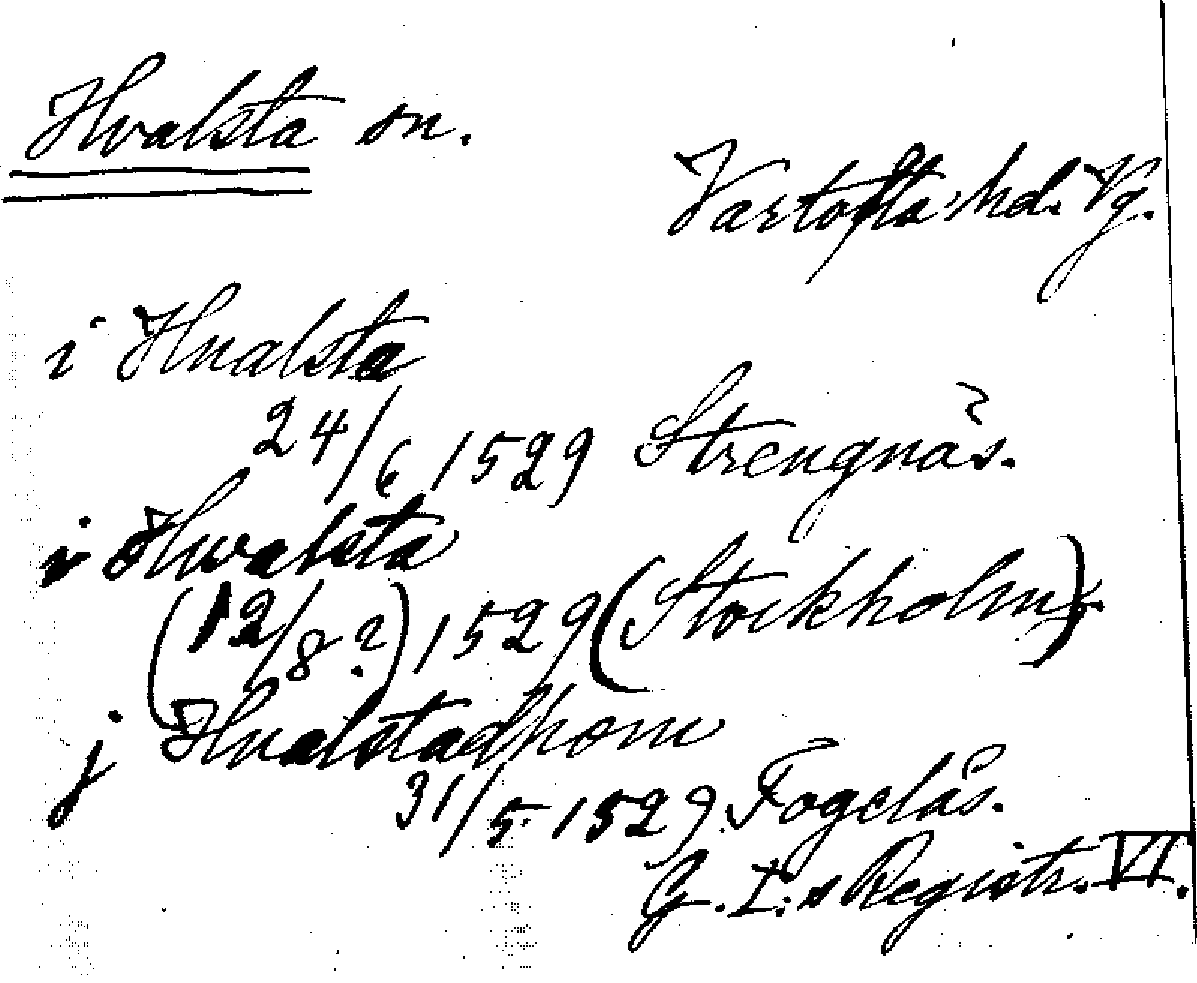 Hvalsta sn.
Vartofta hd. Vg.
i Hualsta
24/6 1529 Strengnäs.
i Hwalsta
(12/8?) 1529 (Stockholm).
j Hualstadhom
31/5 1529 Fogelås.
G. I:s Registr. VI.